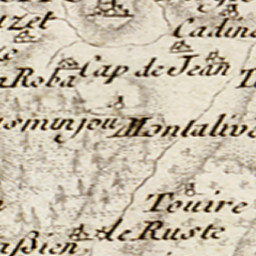 uzet
Cadine
a Roba
Cap de Jean
ominjou
Montalive
Touire
de Ruste
aßien